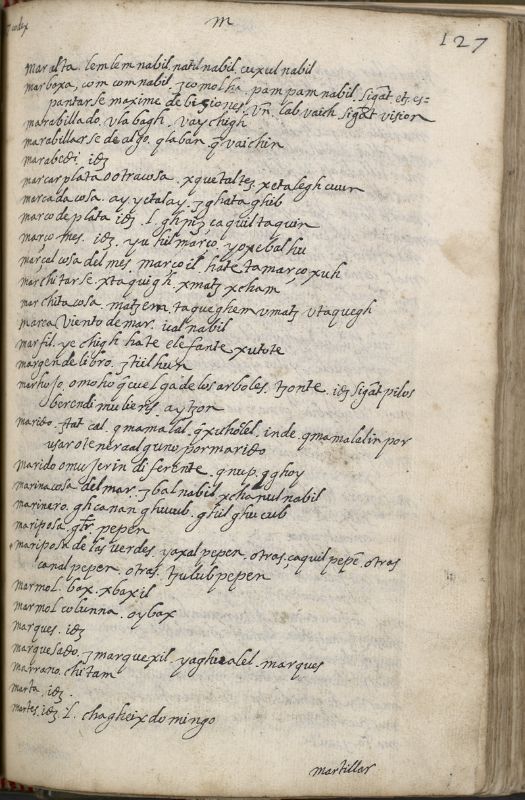 codex
m
127
mar alta. lem lem nabil. natil nabil. cuxul nabil
mar boxa, com com nabil. ʒcomolha. pam pam nabil. sigāt
pantarse maxime de bisiones. vn. cab vaich sigāt vision
marabillado. vlabagh. vaychigh
marabillarse de algo. qlaban q̄ vaichin
marabedi. idʒ
marcar plata o otra cosa. xquetalteʒ. xetaleghcuun
marcada cosa. ay, yetalay. ʒghataghib
marco de plata idʒ. l. ca quiltaquin
março mes. idʒ. yu hil março. yoxebal hu
marçal cosa del mes. marçoil. hate tamarçoxuh
marchitarse. xtaquigh. xmatʒ xcham
marchita cosa. matʒem, taqueghem vmatʒ vtaquegh
marca Viento de mar. ical nabil
marfil. ye chigh hate elefante xutote
margen de libro. ʒtiil hun
marhojo, o moho q̄ cuelga de los arboles. tʒonte. idʒ sigāt pilos
berendi mulieris. aytʒon
marido. ʃtat cal. qmamalal. q̄xuholel. inde. qmamalalin por
usar o tener a alguno por marido
marido o mujer in diferente. qnup. qghoy
marina cosa del mar. ʒbal nabil xchanul nabil
marinero. ghcanan ghuuub. ghiil ghucub
mariposa. gtr̄. pepen
mariposa de las verdes. yaxal pepen. otras, çaquil pepē. otras
canal pepen. otras. tʒulub pepen
marmol. bax. xbaxil
marmol colunna. oybax
marques. idʒ
marquesado. ʒmarquexil. yaghualel. marques
marrano. chitam
marta. idʒ.
martes. idʒ. l. chagheix domingo
martillar